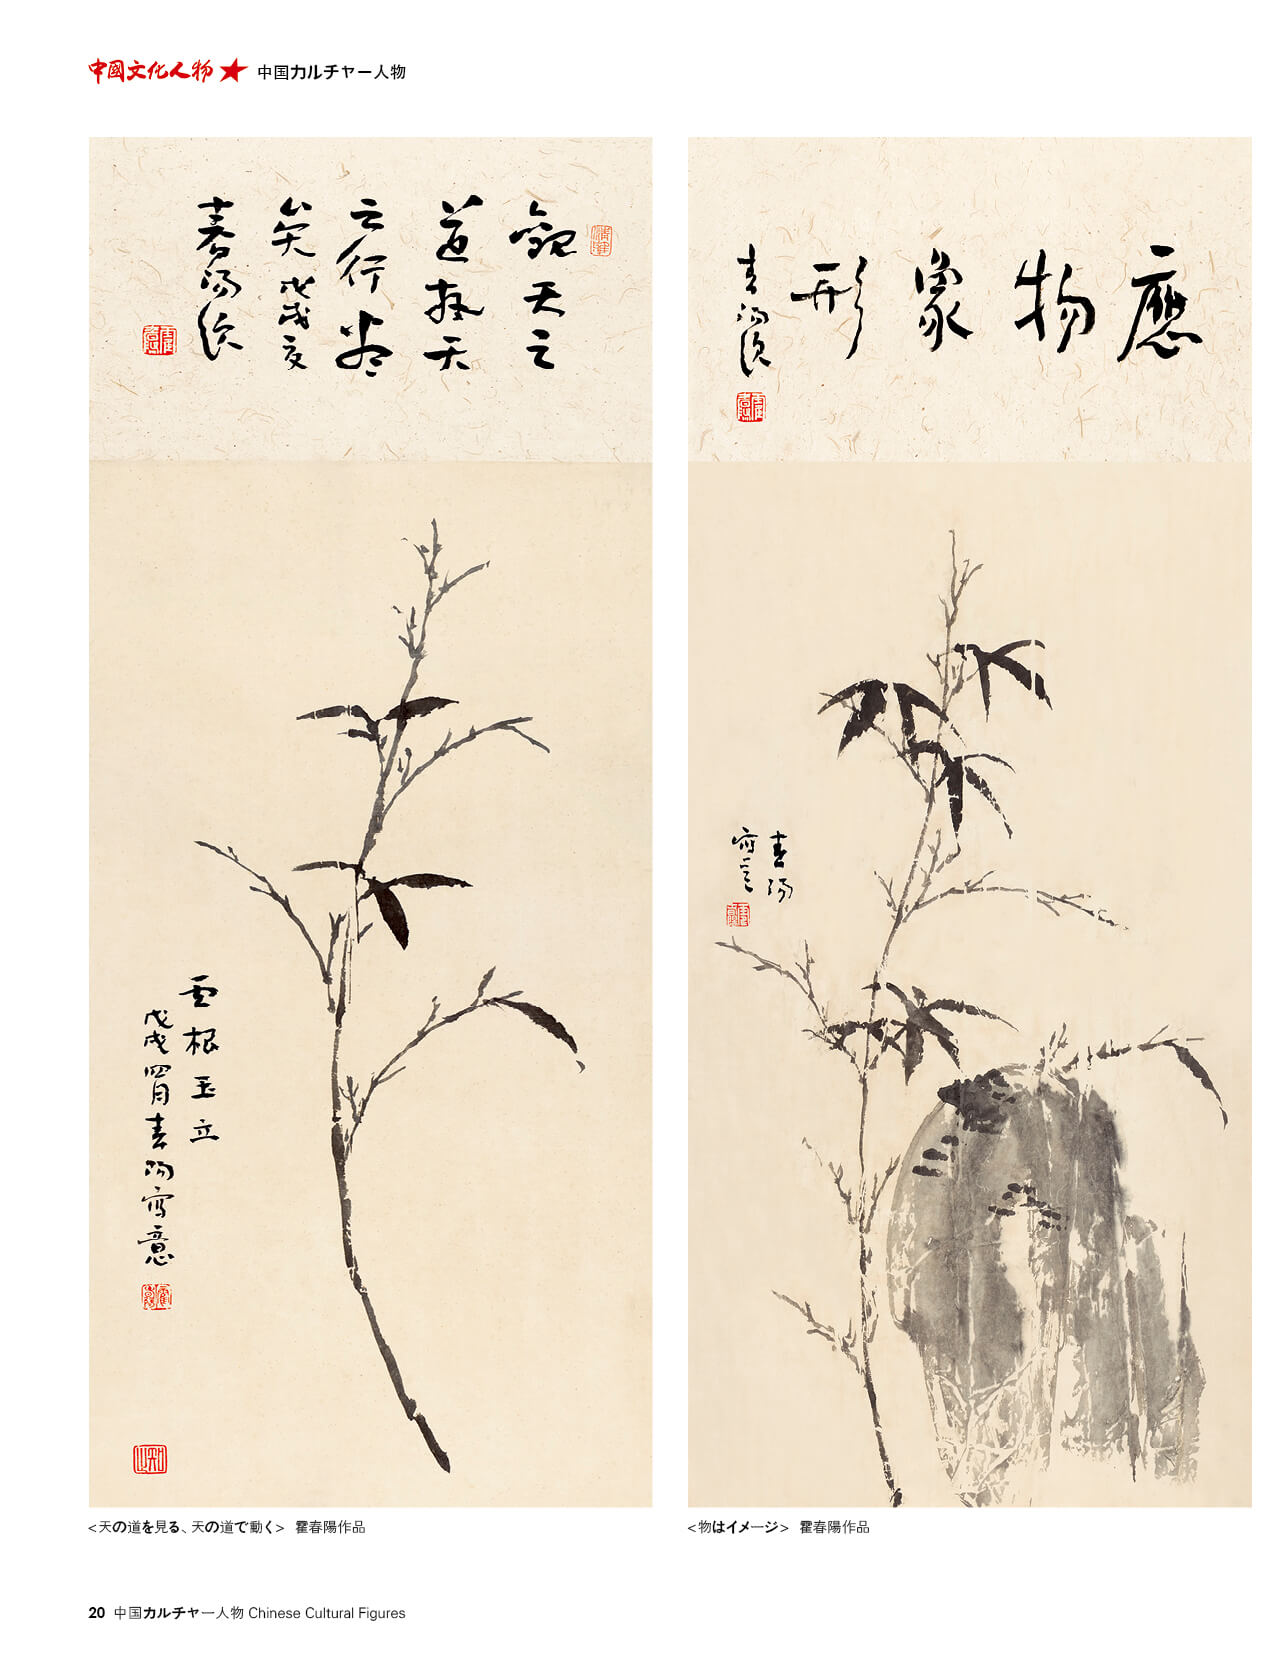 中國文化人物 中国カルチャー人物
觀天之
道執天
之行盡
矣 戊戌夏
春陽題
雲根玉立
戊戌四月春陽寫意
知止
<天の道を見る、天の道で動く> 霍春陽作品
應物象形
春陽題
春陽
寫意
<物はイメージ> 霍春陽作品
20 中国カルチャー人物 Chinese Cultural Figures